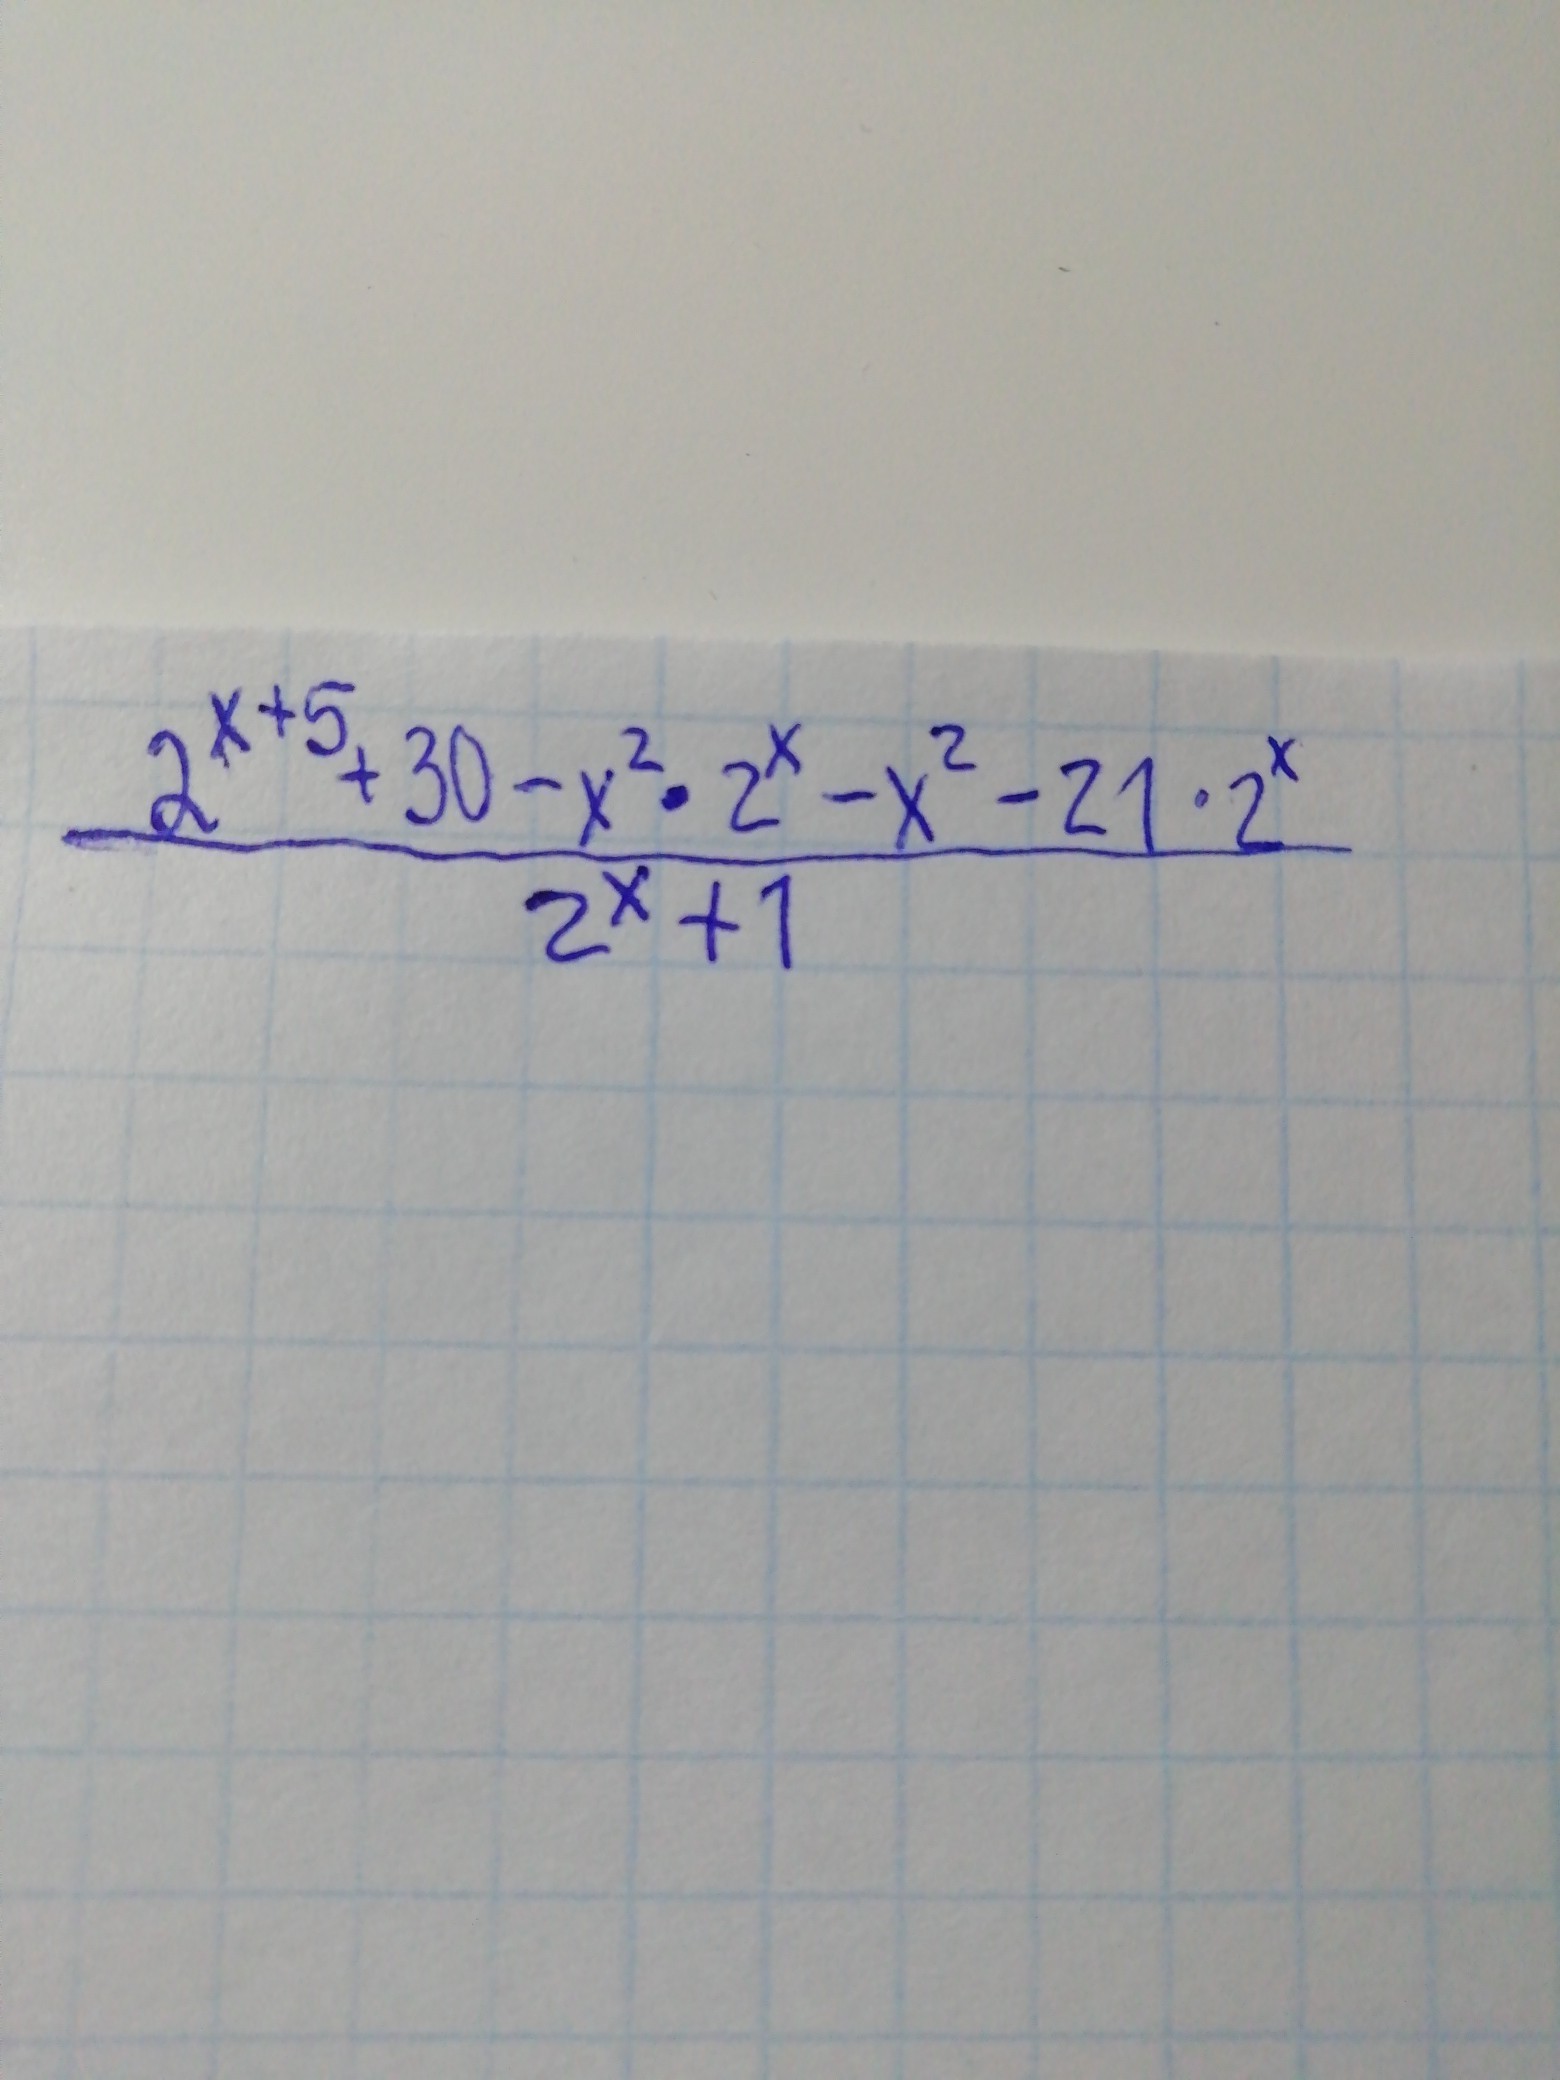 2^{x+5} + 30 - x^2 • 2^x - x^2 - 21 · 2^x
2^x + 1